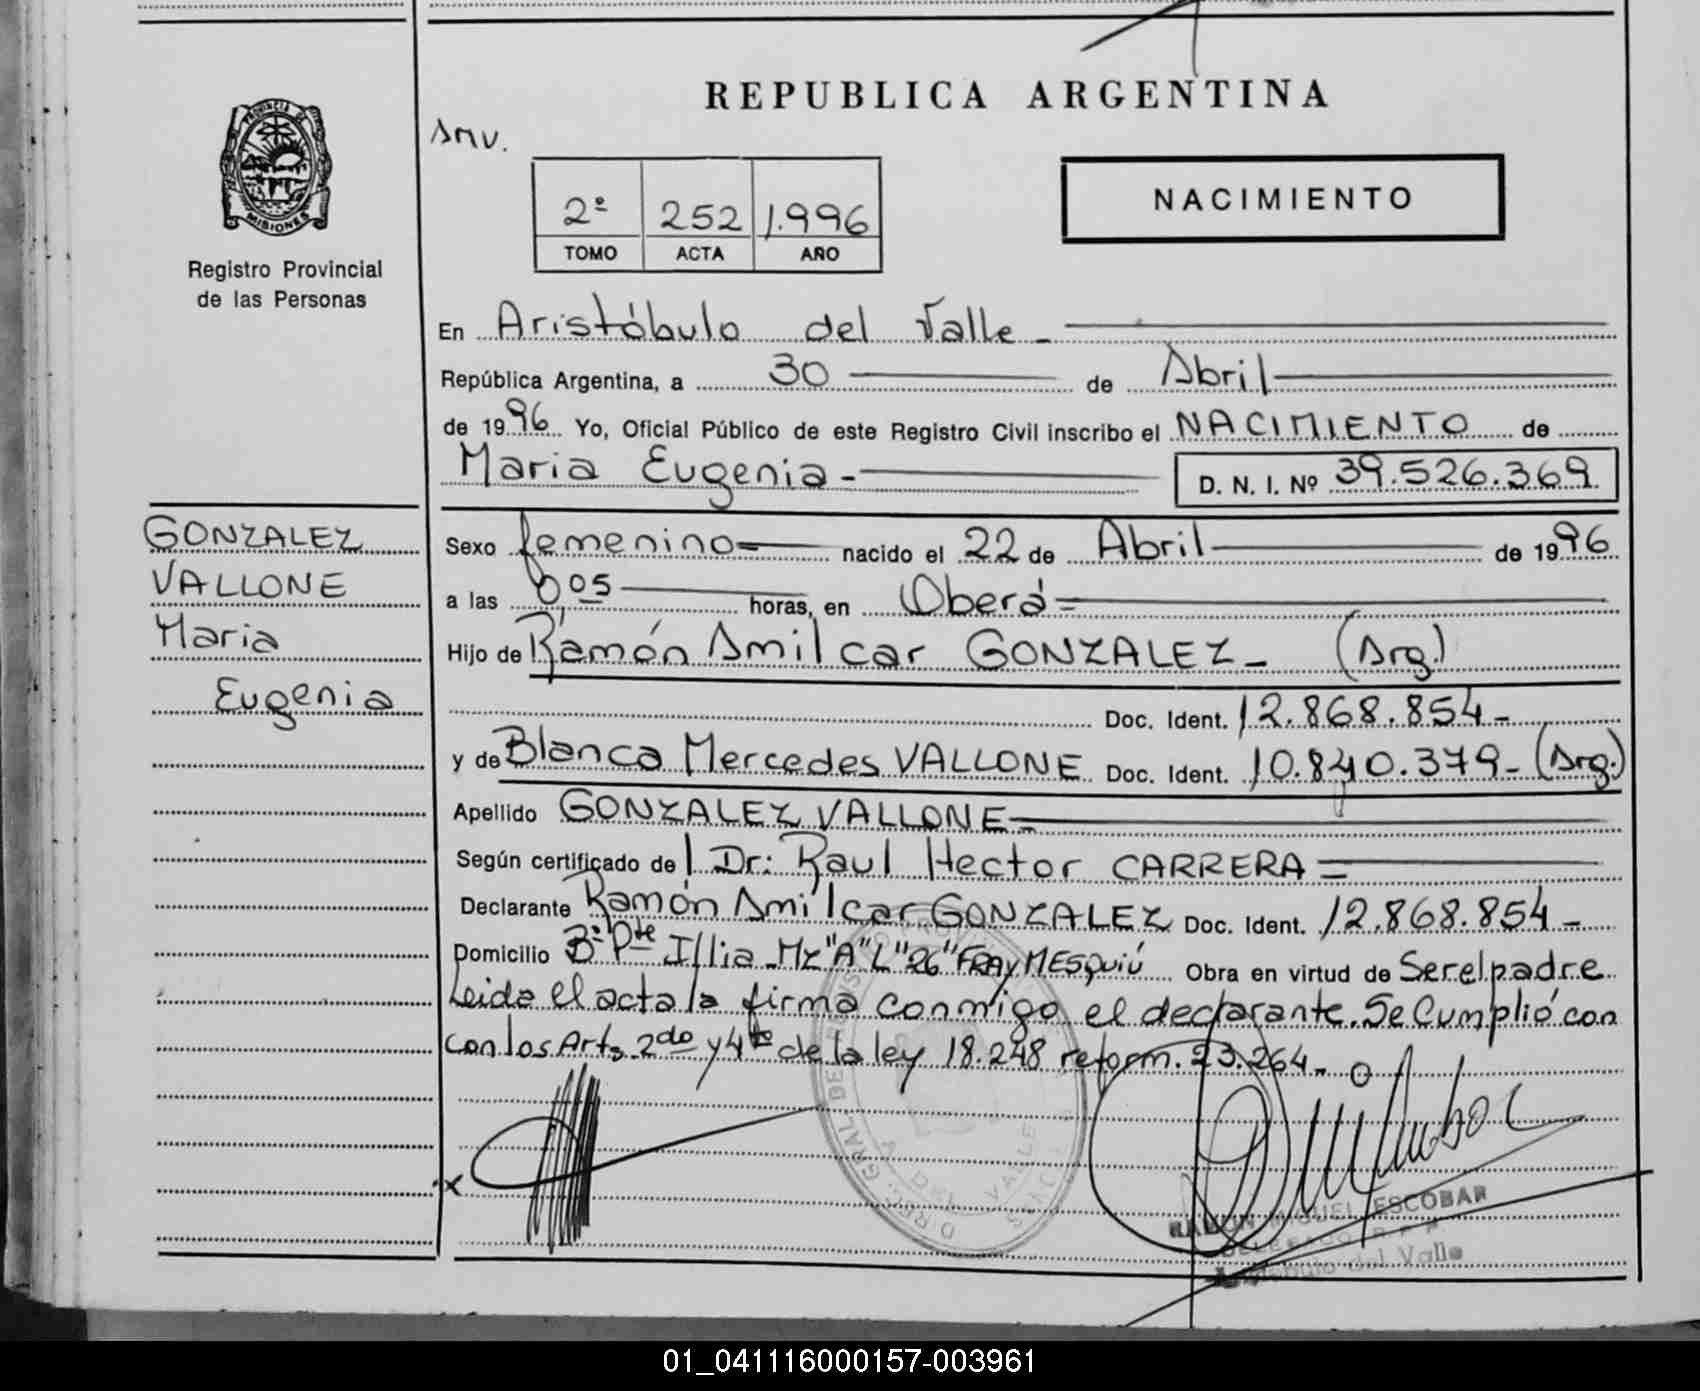 REPUBLICA ARGENTINA
PROVINCIA DE
MISIONES
Registro Provincial
de las Personas
2º 252 1.996
TOMO ACTA AÑO
NACIMIENTO
En Aristóbulo del Valle -
República Argentina, a 30 de Abril
de 1996 Yo, Oficial Público de este Registro Civil inscribo el NACIMIENTO de
Maria Eugenia - D. N. I. Nº 39.526.369
GONZALEZ
VALLONE
Maria
Eugenia
Sexo femenino nacido el 22 de Abril de 1996
a las 0,05 horas, en Oberá
Hijo de Ramón Amilcar GONZALEZ - (Arg.)
Doc. Ident. 12.868.854 -
y de Blanca Mercedes VALLONE Doc. Ident. 10.840.379 - (Arg.)
Apellido GONZALEZ VALLONE -
Según certificado del Dr: Raul Hector CARRERA
Declarante Ramón Amilcar GONZALEZ Doc. Ident. 12.868.854 -
Domicilio Bº Pte Illia Mz "A" L "26" FRAY MESQUIÚ Obra en virtud de Ser el padre
Leida el acta la firma conmigo el declarante. Se Cumplió con
con los Arts. 2do y 4to de la ley 18.248 reform. 23.264 -
RAMON MIGUEL ESCOBAR
DELEGADO R.P.P.
Aristobulo del Valle
01_041116000157-003961